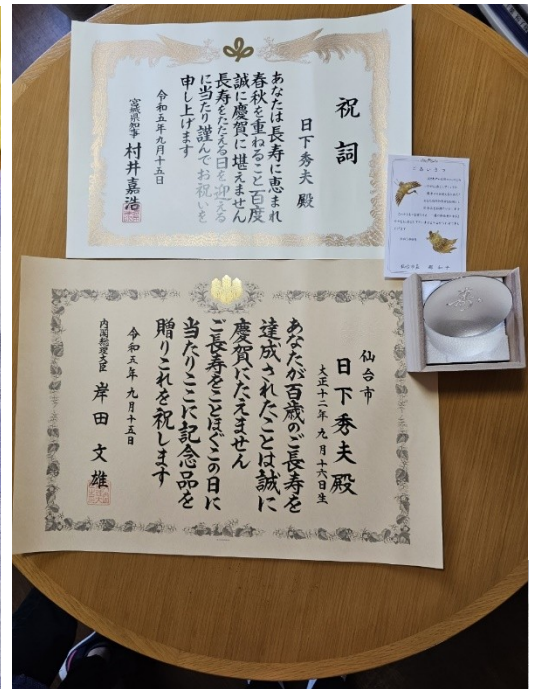 祝詞
日下秀夫 殿
あなたは長寿に恵まれ
春秋を重ねること百度
誠に慶賀に堪えません
長寿をたたえる日を迎える
に当たり謹んでお祝いを
申し上げます
令和五年九月十五日
宮城県知事 村井嘉浩
仙台市
日下秀夫殿
大正十二年九月十六日生
あなたが百歳のご長寿を
達成されたことは誠に
慶賀にたえません
ご長寿をことほぐこの日に
当たりここに記念品を
贈りこれを祝します
令和五年九月十五日
内閣総理大臣 岸田文雄
寿